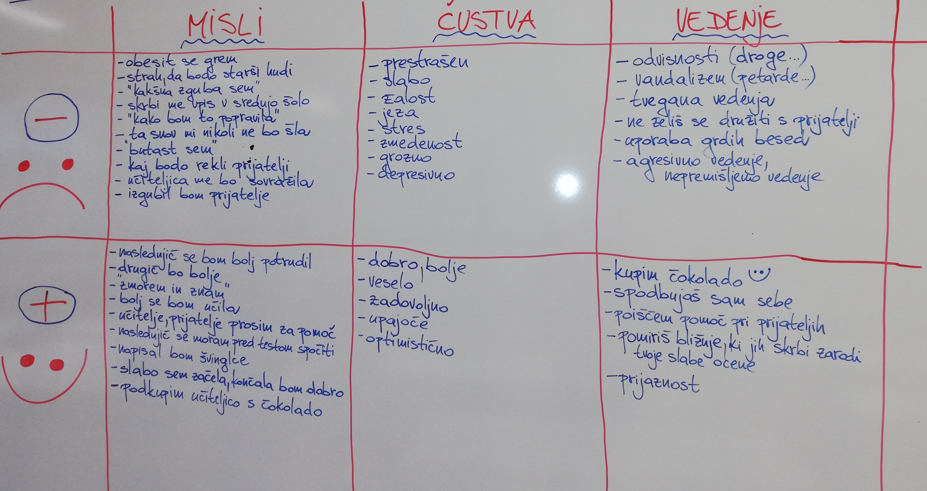 MISLI
ČUSTVA
VEDENJE
-
- obesit se grem
- strah, da bodo starši hudi
- "kakšna zguba sem"
- skrbi me vpis v srednjo šolo
- "kako bom to popravila"
- ta snov mi nikoli ne bo šla
- "butast sem"
- kaj bodo rekli prijatelji
- učiteljica me bo sovražila
- izgubil bom prijatelje
- prestrašen
- slabo
- žalost
- jeza
- stres
- zmedenost
- grozno
- depresivno
- odvisnosti (droge...)
- vandalizem (petarde...)
- tvegana vedenja
- ne želiš se družiti s prijatelji
- uporaba grdih besed
- agresivno vedenje,
nepremišljeno vedenje
+
- naslednjič se bom bolj potrudil
- drugič bo bolje
- "zmorem in znam"
- bolj se bom učila
- učitelje, prijatelje prosim za pomoč
- naslednjič se moram pred testom spočiti
- napisal bom švinglce
- slabo sem začela, končala bom dobro
- podkupim učiteljico s čokolado
- dobro, bolje
- veselo
- zadovoljno
- upajoče
- optimistično
- kupim čokolado
- spodbujaš sam sebe
- poiščem pomoč pri prijateljih
- pomiriš bližnje, ki jih skrbi zaradi
tvoje slabe ocene
- prijaznost